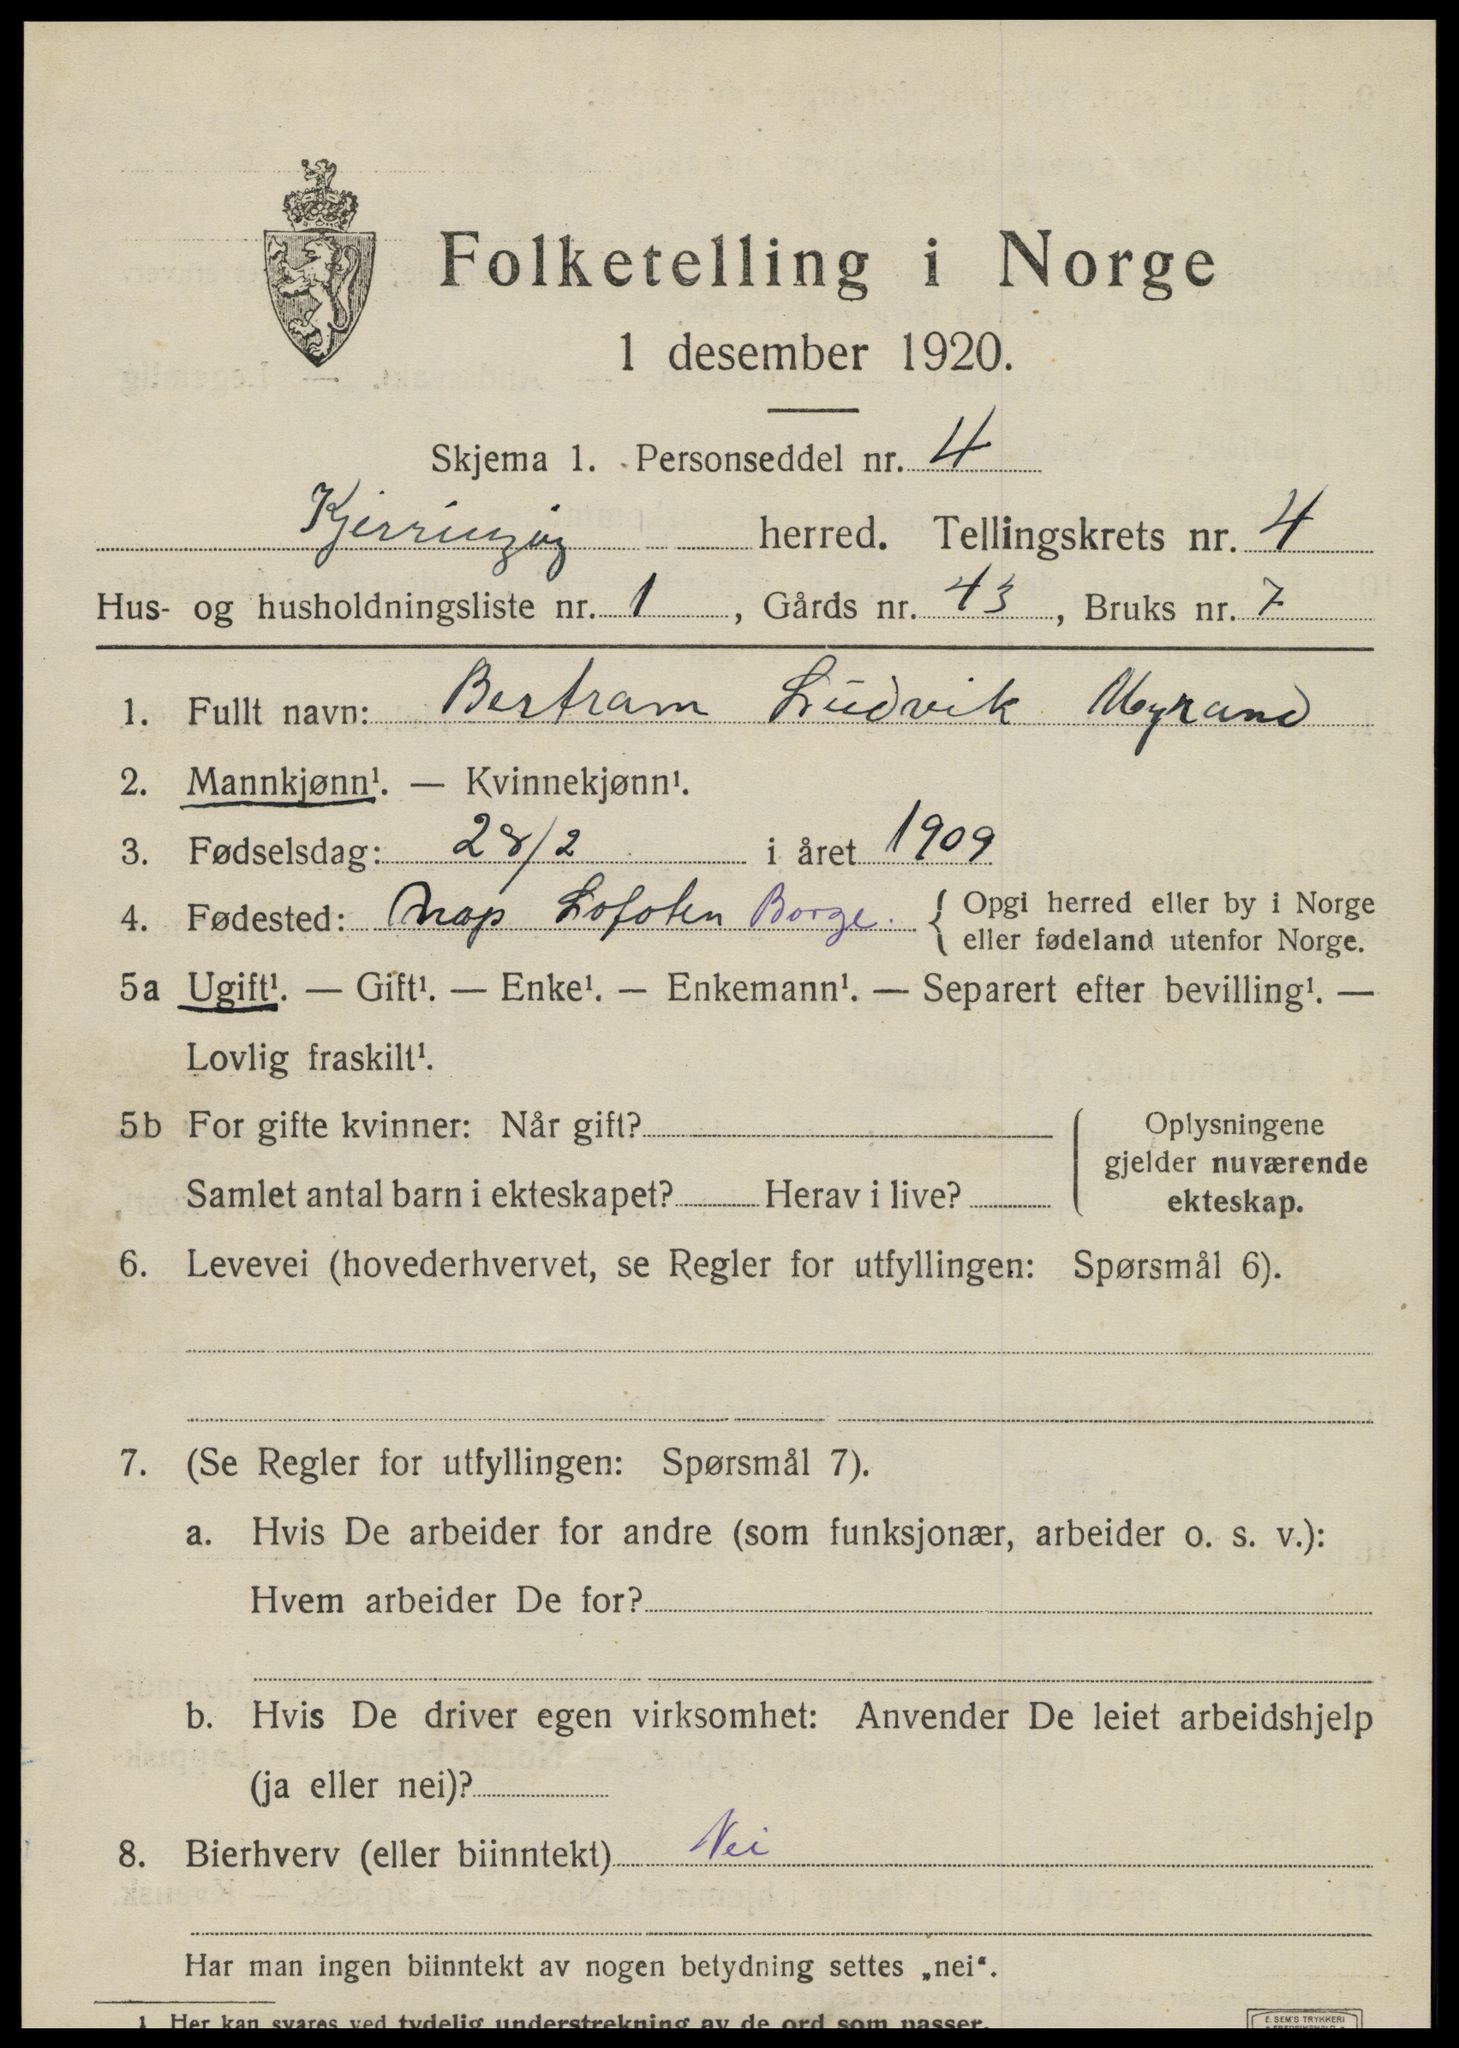 Folketelling i Norge
1 desember 1920.
Skjema 1. Personseddel nr. 4
Kjerringøy herred. Tellingskrets nr. 4
Hus- og husholdningsliste nr. 1, Gårds nr. 43, Bruks nr. 7
1. Fullt navn: Bertram Ludvik Myrand
2. Mannkjønn¹. — Kvinnekjønn¹.
3. Fødselsdag: 28/2 i året 1909
4. Fødested: Nap Lofoten Borge. { Opgi herred eller by i Norge
eller fødeland utenfor Norge.
5a Ugift¹. — Gift¹. — Enke¹. — Enkemann¹. — Separert efter bevilling¹. —
Lovlig fraskilt¹.
5b For gifte kvinner: Når gift?
Samlet antal barn i ekteskapet? Herav i live?
Oplysningene
gjelder nuværende
ekteskap.
6. Levevei (hovederhvervet, se Regler for utfyllingen: Spørsmål 6).
7. (Se Regler for utfyllingen: Spørsmål 7).
a. Hvis De arbeider for andre (som funksjonær, arbeider o. s. v.):
Hvem arbeider De for?
b. Hvis De driver egen virksomhet: Anvender De leiet arbeidshjelp
(ja eller nei)?
8. Bierhverv (eller biinntekt) Nei
Har man ingen biinntekt av nogen betydning settes „nei“.
1 Her kan svares ved tydelig understrekning av de ord som passer.
E. SEM'S TRYKKERI
FREDRIKSHALD